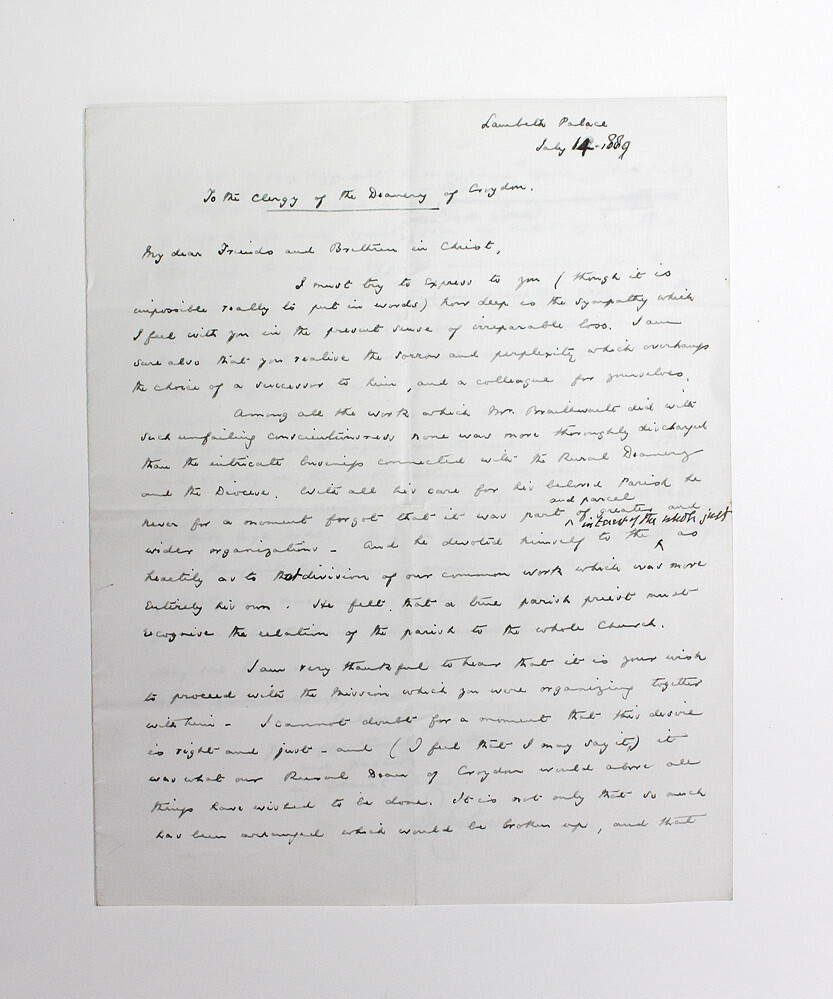 Lambeth Palace
July 14 - 1889
To the Clergy of the Deanery of Croydon.
My dear Friends and Brethren in Christ,
I must try to express to you (though it is
impossible really to put in words) how deep is the sympathy which
I feel with you in the present sense of irreparable loss. I am
sure also that you realise the sorrow and perplexity which overhangs
the choice of a successor to him, and a colleague for yourselves.
Among all the work which Mr. Braithwaite did with
such unfailing conscientiousness none was more thoroughly discharged
than the intricate business connected with the Rural Deanery
and the Diocese. With all his care for his beloved Parish he
and parcel
never for a moment forgot that it was part of greater and
interest of the whole just
wider organizations - And he devoted himself to the as
heartily as to that division of our common work which was more
entirely his own. He felt that a true parish priest must
recognise the relation of the parish to the whole Church.
I am very thankful to hear that it is your wish
to proceed with the Mission which you were organizing together
with him - I cannot doubt for a moment that this desire
is right and just - and (I feel that I may say it) it
was what our Rural Dean of Croydon would above all
things have wished to be done. It is not only that so much
has been arranged which would be broken up, and that